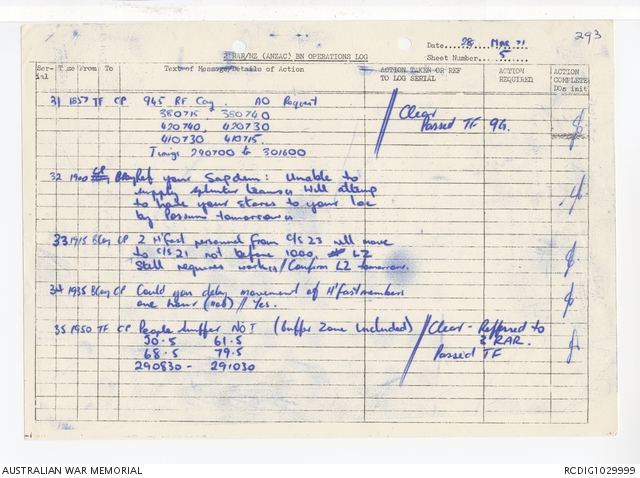 293
Date 28 MAR 71
RAR/NZ (ANZAC) BN OPERATIONS LOG
Sheet Number 5
Serial Time From To Text of Message/Details of Action ACTION TAKEN OR REF TO LOG SERIAL ACTION REQUIRED ACTION COMPLETE DOs init
31 1857 TF CP 945 RF Coy. AO Request // Clear
380715 380740 Passed TF 9G.
420740, 420730
410730 410715.
Timings 290700 to 301600
32 1900 CP BCoy Ref your Sapdem: Unable to
supply splinter teams // Will attempt
to have your stores to your loc
by Possum tomorrow //
33 1915 BCoy CP 2 H'fast personnel from C/S 23 will move
to C/S 21 not before 1000. LZ
Still requires work // Confirm LZ tomorrow.
34 1935 BCoy CP Could you delay movement of H'fast members
one hour (not) // Yes.
35 1950 TF CP People Suffer NOT (buffer zone included) // Clear - Referred to
50.5 61.5 3 RAR.
68.5 79.5 Passed TF
290830 - 291030
AUSTRALIAN WAR MEMORIAL
RCDIG1029999